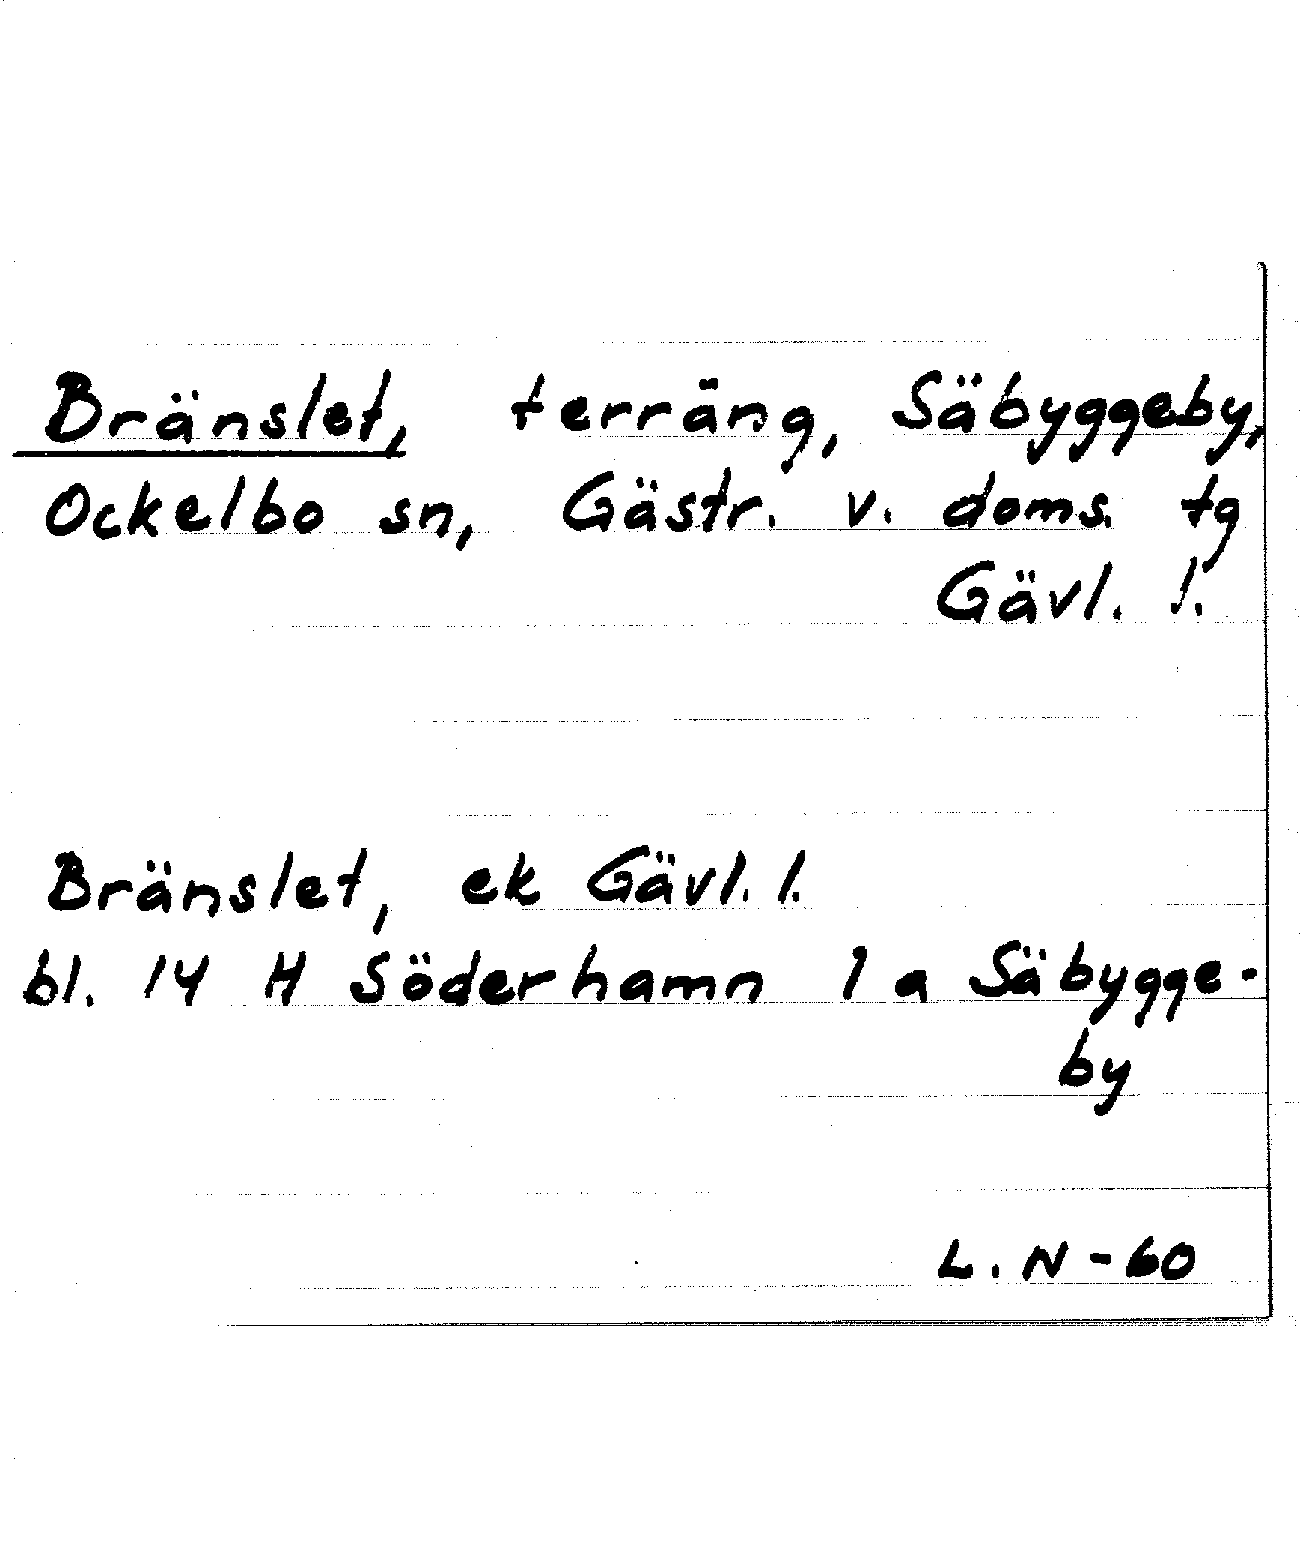 Bränslet, terräng, Säbyggeby,
Ockelbo sn, Gästr. v. doms. tg
Gävl. l.
Bränslet, ek Gävl. l.
bl. 14 H Söderhamn 1 a Säbygge-
by
L. N - 60